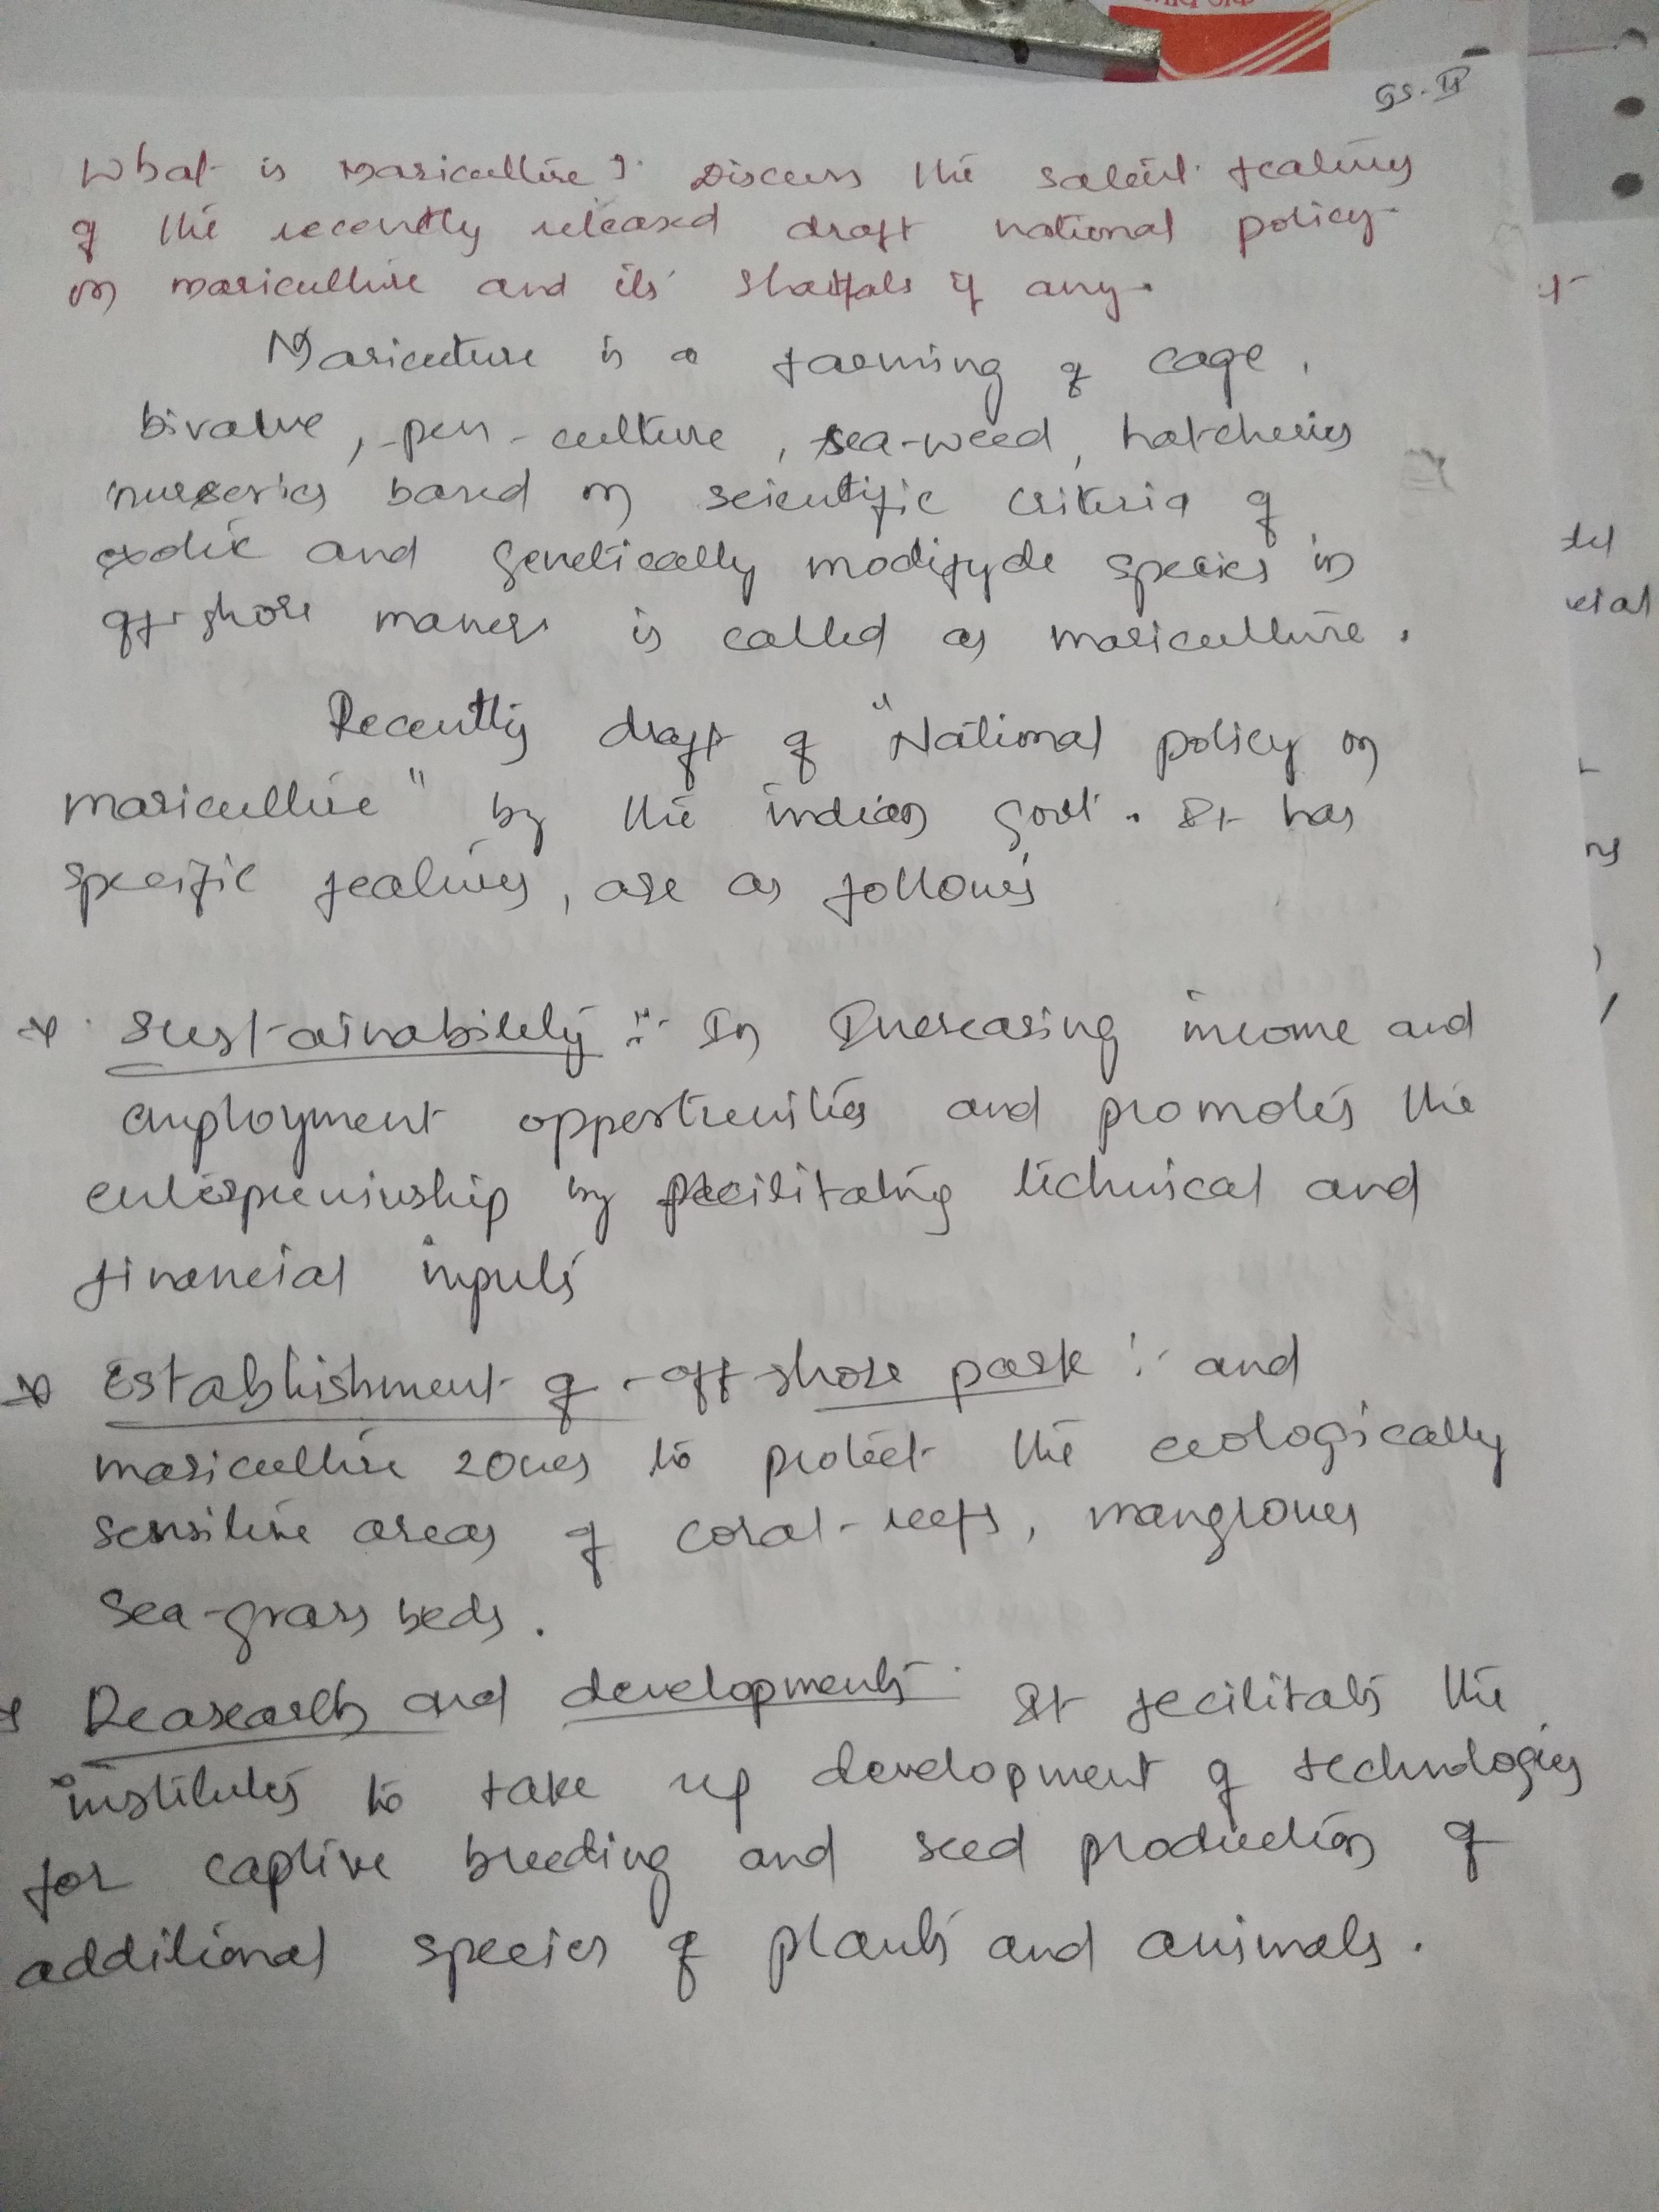 GS-II
What is Mariculture? Discuss the salient features
of the recently released draft national policy
on mariculture and its shortfals if any.
Mariculture is a farming of cage,
bivalve, pen-culture, sea-weed, hatcheries
nurseries based on scientific criteria of
exotic and genetically modifyde species in
off-shore maner is called as mariculture.
Recently draft of "National policy on
mariculture" by the indian govt. It has
specific features, are as follows
Sustainability :- In Increasing income and
employment opportunities and promotes the
enterpreniurship by facilitating technical and
financial inputs
Establishment of off-shore park :- and
mariculture zones to protect the ecologically
sensitive areas of coral-reefs, mangroves
sea-grass beds.
Reasearch and developments It fecilitats the
institutes to take up development of technologies
for captive breeding and seed production of
additional species of plants and animals.